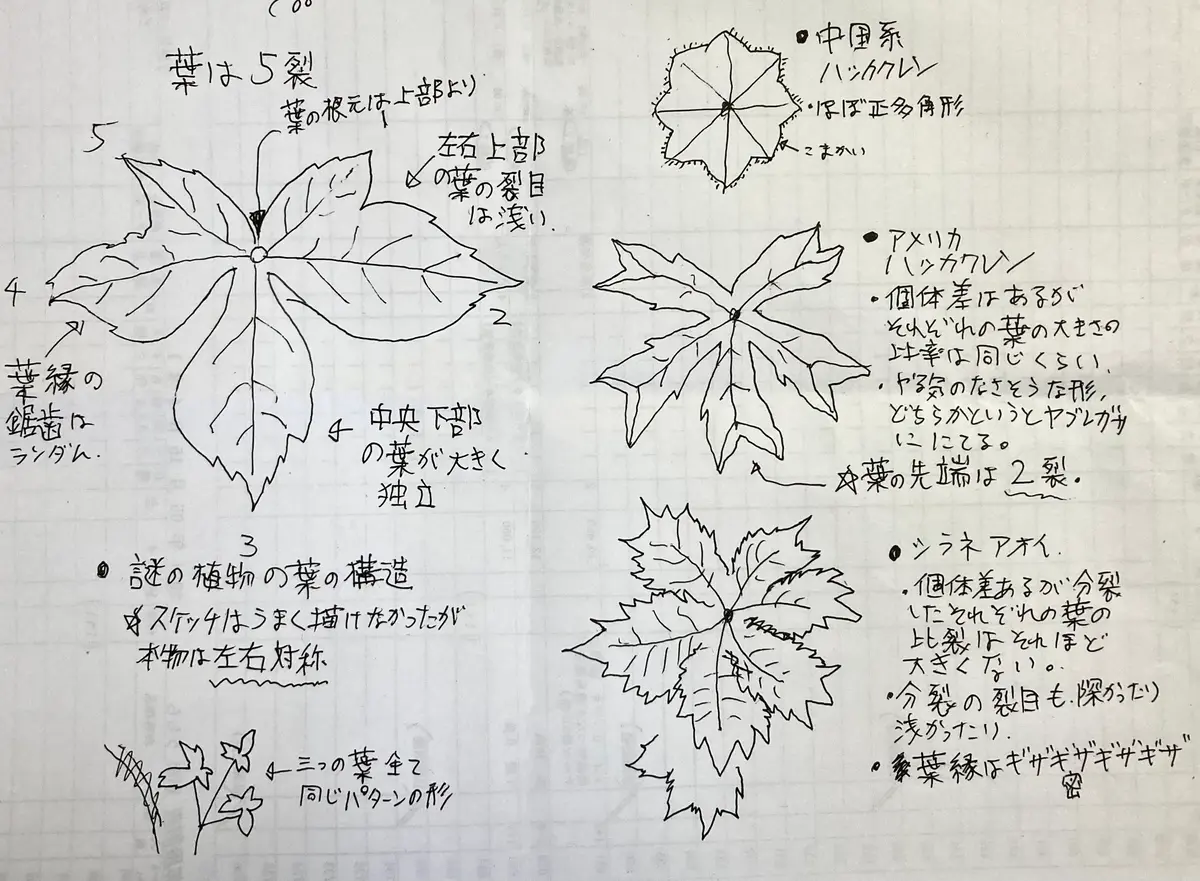 葉は5裂
葉の根元は上部より
左右上部
の葉の裂目
は浅い.
5
4
2
3
葉縁の
鋸歯は
ランダム.
中央下部
の葉が大きく
独立
● 謎の植物の葉の構造
☆スケッチはうまく描けなかったが
本物は左右対称
三つの葉全て
同じパターンの形
● 中国系
ハッカクレン
・ほぼ正多角形
こまかい
● アメリカ
ハッカクレン
・個体差はあるが
それぞれの葉の大きさの
比率は同じくらい.
・ヤル気のなさそうな形,
どちらかというとヤブレガサ
ににてる。
☆葉の先端は2裂.
● シラネアオイ.
・個体差あるが分裂
したそれぞれの葉の
比裂はそれほど
大きくない。
・分裂の裂目も.深かったり
浅かったり.
・葉縁はギザギザギザギザ